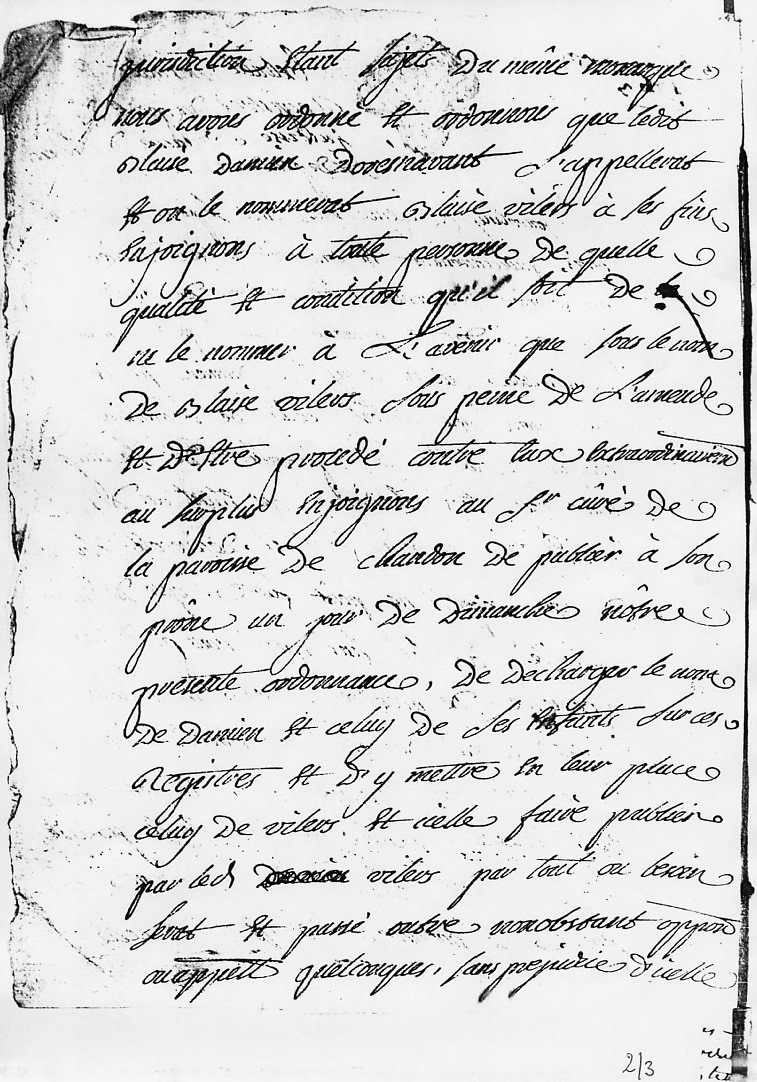 jurisdiction Etant sujets Du même monarque
nous avons ordonné Et ordonnons que ledit
Blaise Damien Doresnavant S'appellerat
Et on le nommerat Blaise vilers à ses fins
Enjoignons à toute personne De quelle
qualité Et condition qu'il soit De
ne le nommer à L'avenir que sous le nom
De Blaise vilers sous peine De L'amende
Et D'Etre procedé contre Eux Extraordinairem
au surplus Enjoignons au Sr curé De
la paroisse De chandon De publier à son
prône un jour De Dimanche nôtre
presente ordonnance, De Decharger le nom
De Damien Et celuy De ses Enfants sur ces
Registres Et D'y mettre En leur place
celuy De vilers Et icelle faire publier
par led vilers par tout ou besoin
serat Et passé outre nonobstant oppon
ou appell quelconques, sans prejudice d'icelle
2/3